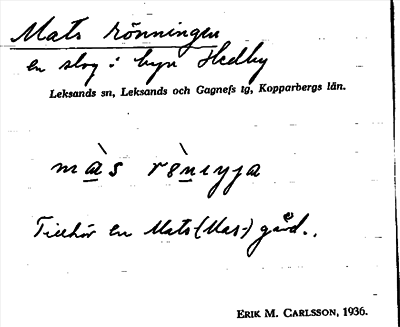 Mats rönningen
en slog i byn Hedby
Leksands sn, Leksands och Gagnefs tg, Kopparbergs län.
màs rönıŋa
Tillhör en Mats-(Mas-) gård..
ERIK M. CARLSSON, 1936.